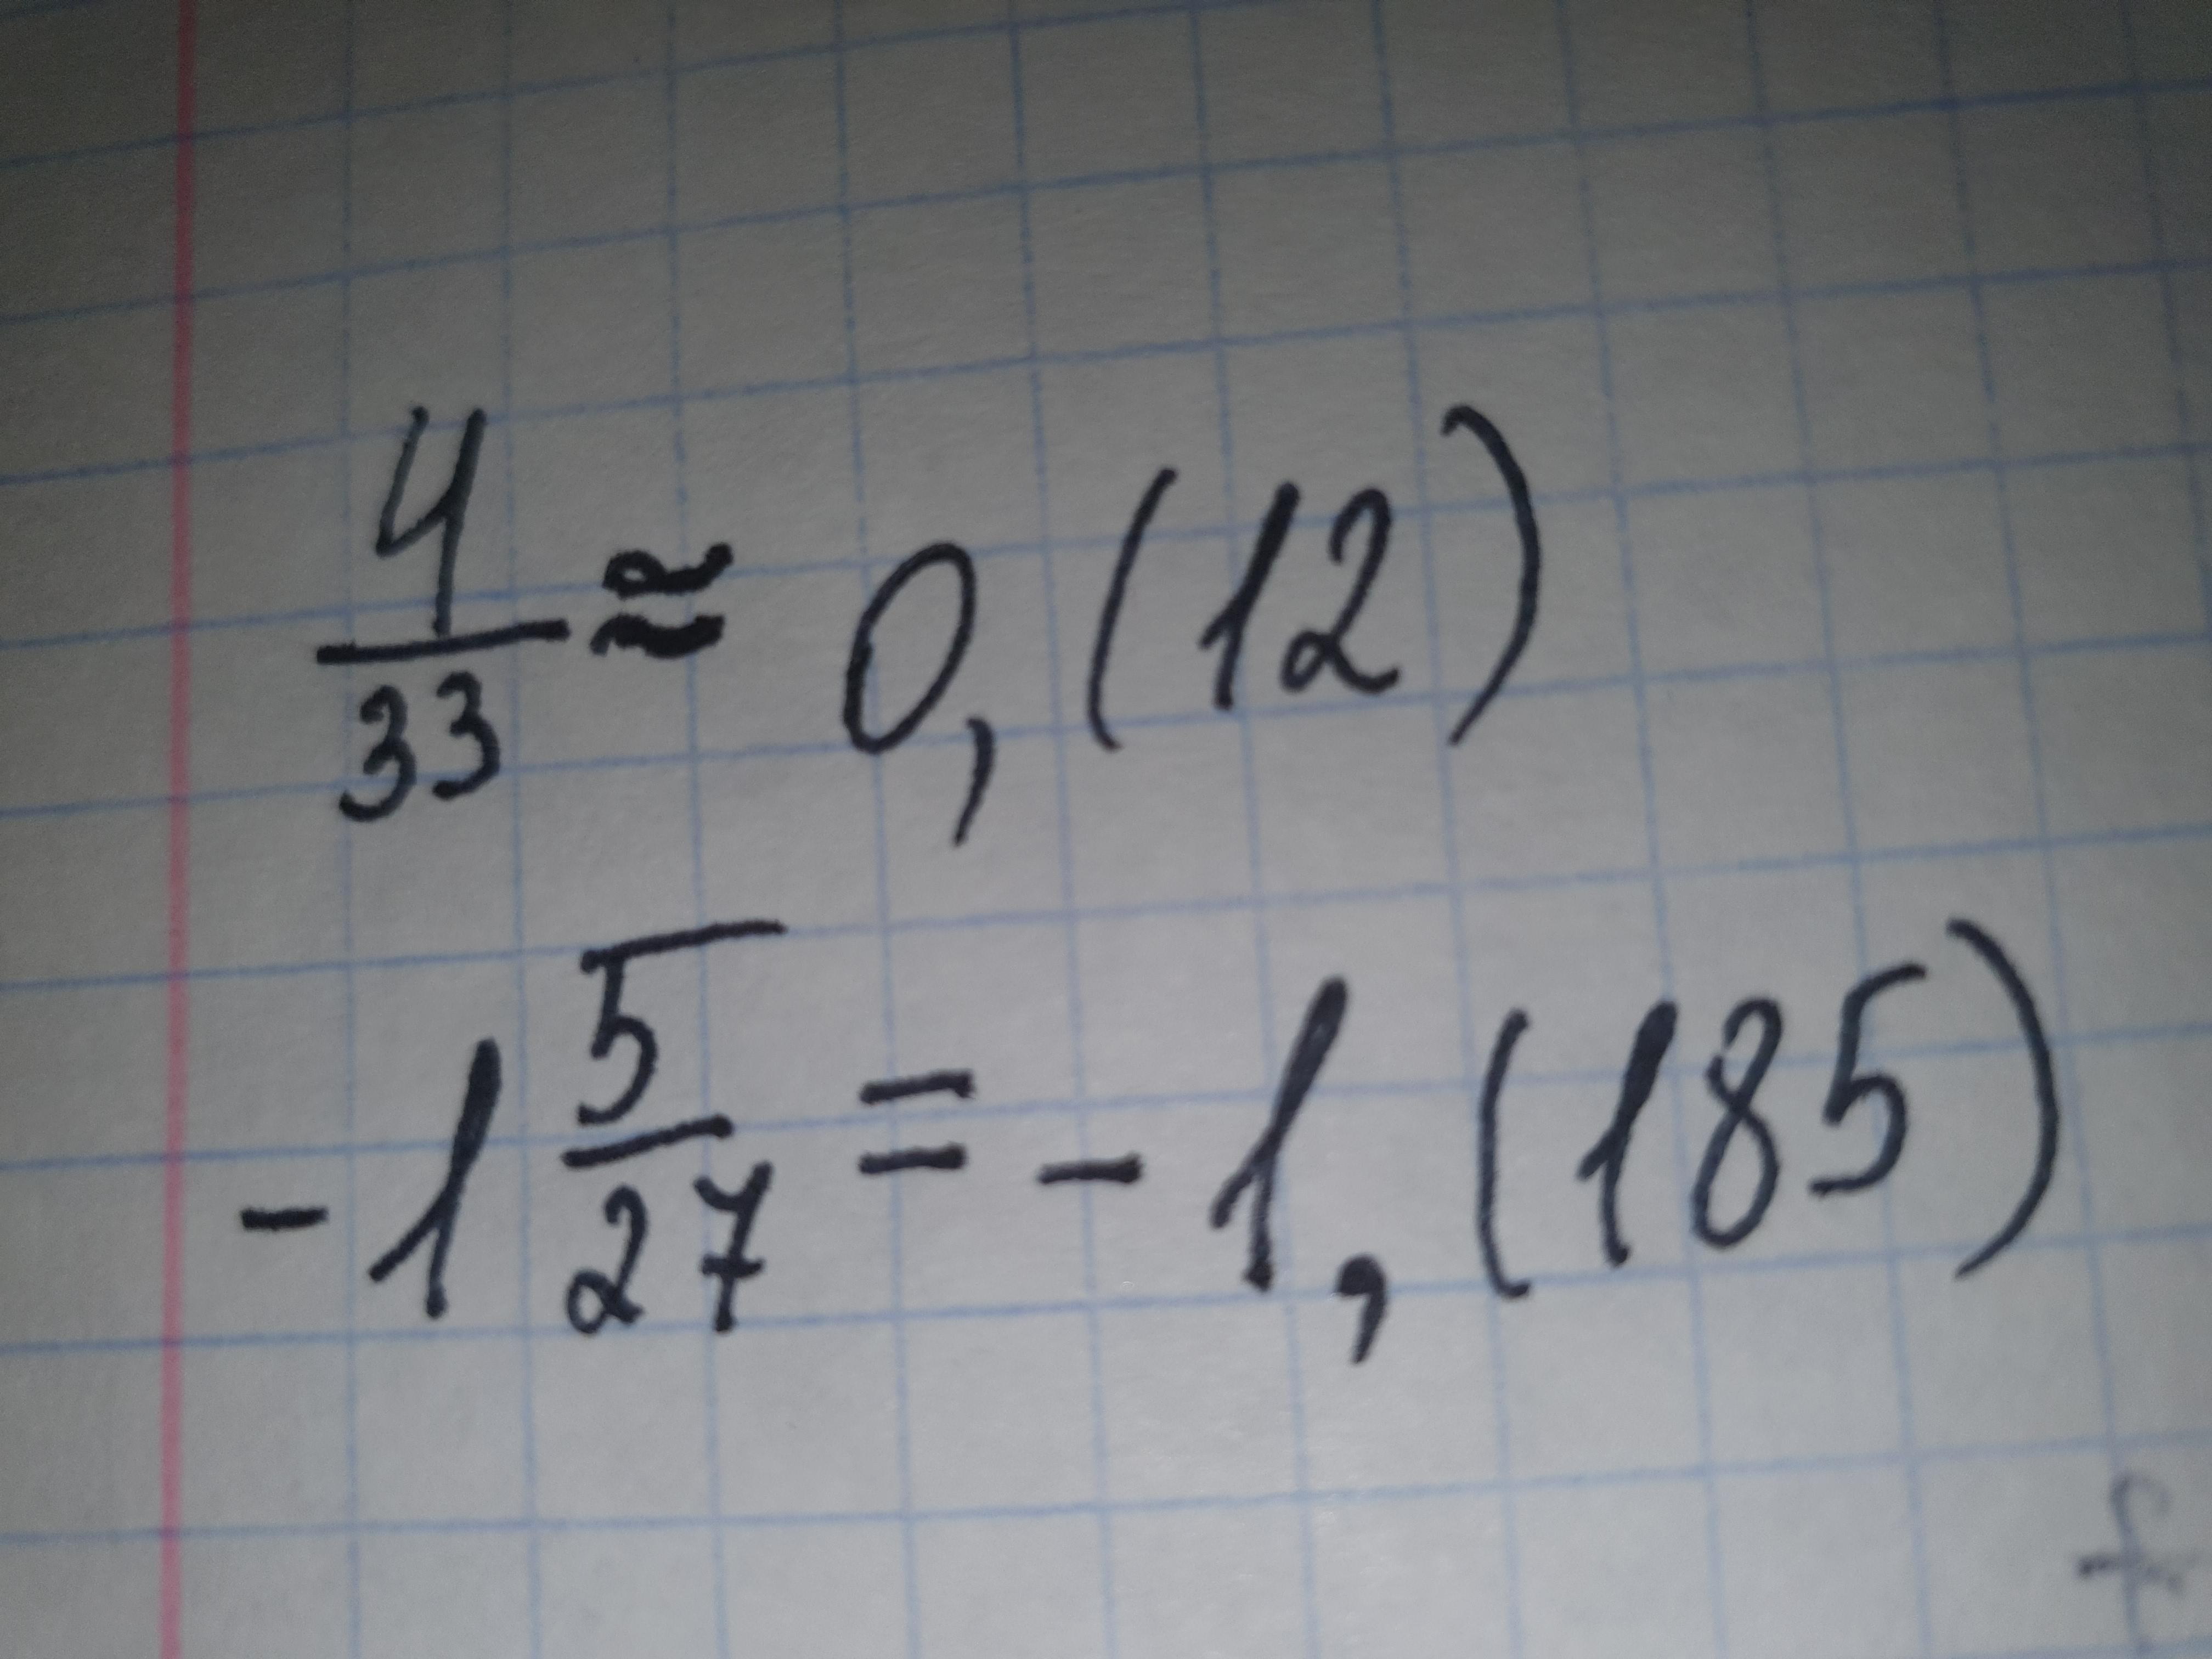 4/33 ≈ 0,(12)
-1 5/27 = -1,(185)